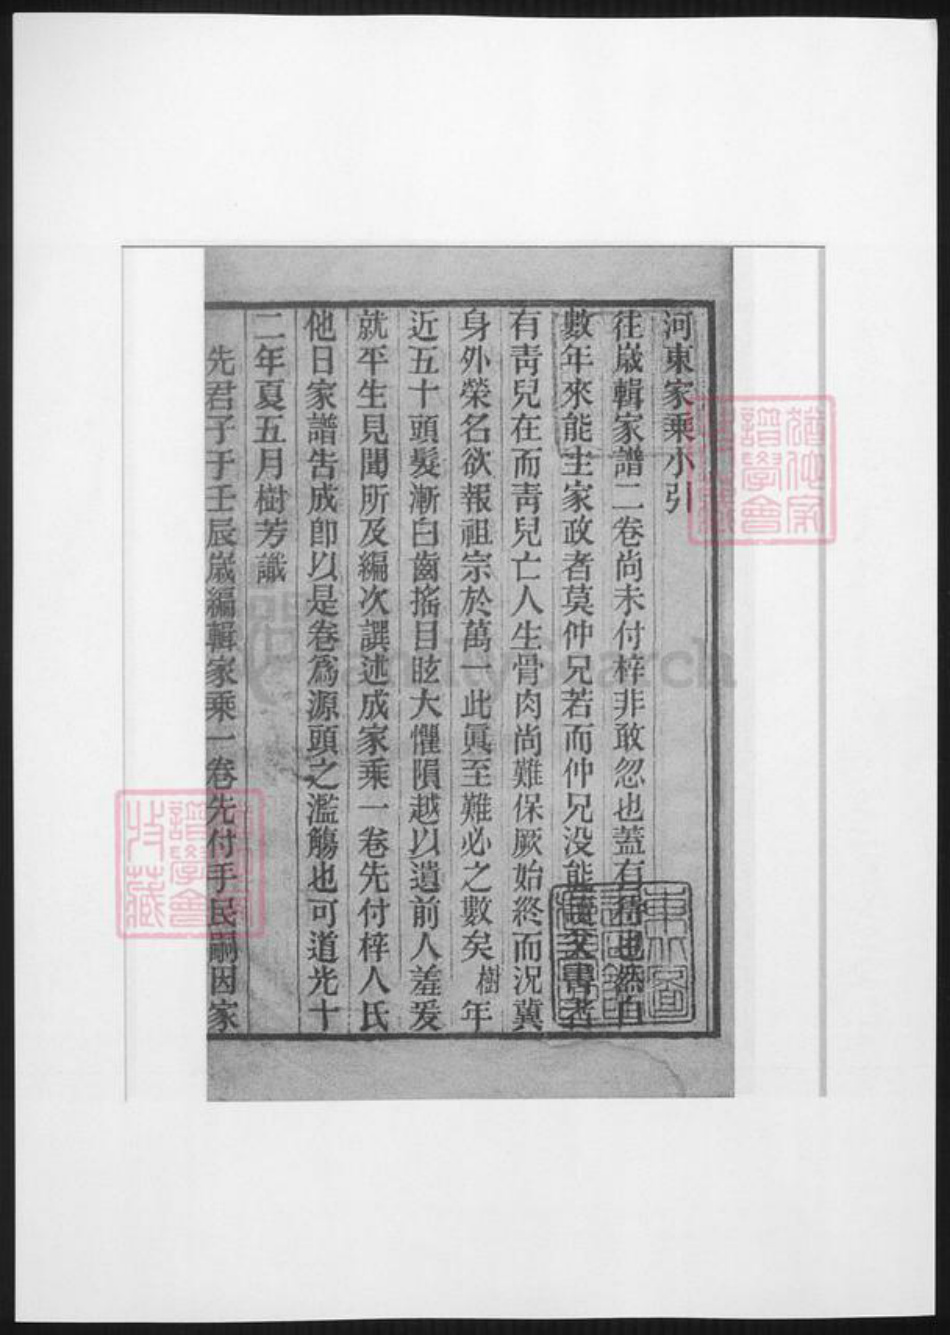 河東家乘小引
往歲輯家譜二卷尚未付梓非敢忽也蓋有待也然自
數年來能主家政者莫仲兄若而仲兄没能讀父書者
有靑兒在而靑兒亡人生骨肉尚難保厥始終而況冀
身外榮名欲報祖宗於萬一此眞至難必之數矣樹年
近五十頭髮漸白齒搖目眩大懼隕越以遺前人羞爰
就平生見聞所及編次譔述成家乘一卷先付梓人氏
他日家譜告成卽以是卷爲源頭之濫觴也可道光十
二年夏五月樹芳識
先君子于壬辰歲編輯家乘一卷先付手民嗣因家